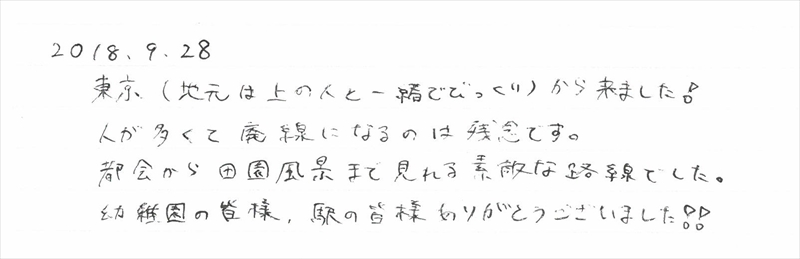 2018.9.28
東京(地元は上の人と一緒でびっくり)から来ました!
人が多くて廃線になるのは残念です。
都会から田園風景まで見れる素敵な路線でした。
幼稚園の皆様,駅の皆様ありがとうございました!!